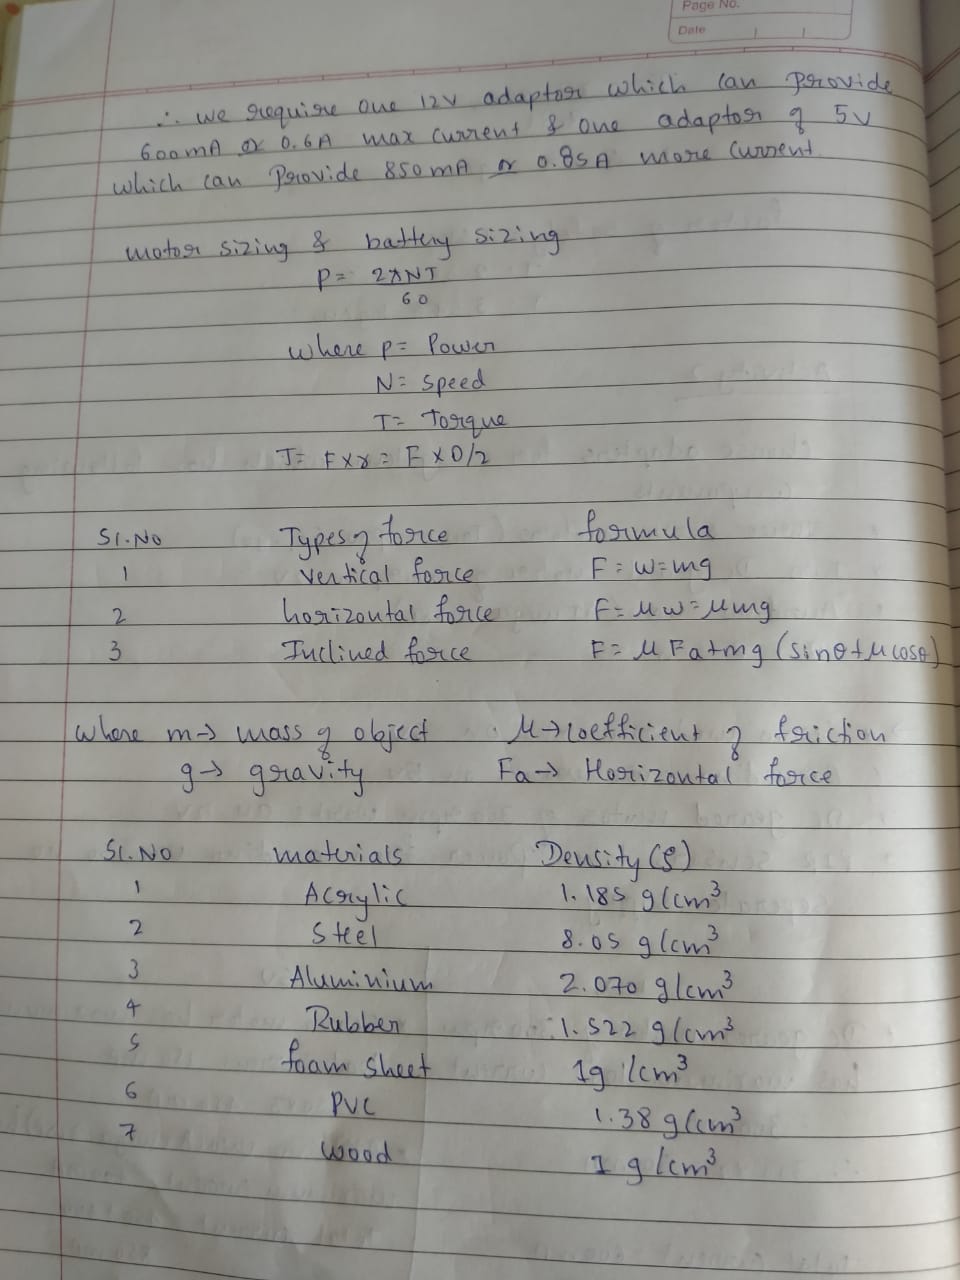 Page No.
Date
∴ we require one 12V adaptor which can Provide
600mA or 0.6A max current & one adaptor of 5V
which can Provide 850mA or 0.85A more current
motor sizing & battery sizing
P= 2πNT
60
where P= Power
N= Speed
T= Torque
T= F×r = F×D/2
Sl.No Types of force formula
1 vertical force F=w=mg
2 horizontal force F=μw=μmg
3 Inclined force F=μFa+mg(sinθ+μcosθ)
where m→ mass of object μ→coefficient of friction
g→ gravity Fa→ Horizontal force
Sl.NO materials Density(ρ)
1 Acrylic 1.185 g/cm³
2 Steel 8.05 g/cm³
3 Aluminium 2.070 g/cm³
4 Rubber 1.522 g/cm³
5 foam sheet 1g/cm³
6 PVC 1.38 g/cm³
7 wood 1 g/cm³